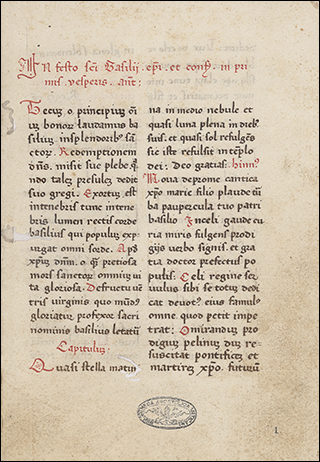 In festo sci Basilij. epi. et conf. in pri
mis. vesperis. ant:
Tecuz o principiuz oi
uz bonoz laudamus ba
silius insplendoribz san
ctoz. Redemptionem
dns. misit sue plebe. qn
do tales presulez dedit
suo gregi. Exortuz est
intenebris tunc intene
bris lumen rectis corde
basilius qui populuz exp
urgat omni sorde. Apd
xpuz dnm. o qz pretiosa
mors sanctoz omniuz vi
ta gloriosa. De fructu ve
tris virginis quo mudo
gloriatuz professoz sacri
nominis basilius letatuz
Capituluz.
Quasi stella matuti
na in medio nebule et
quasi luna plena in dieb
suis. et quasi sol refulges
sic iste refulsit in teplo
dei. Deo gratias. hinus
Nova deprome cantica
xpo marie filio plaudetu
ba paupercula tuo patri
basilio. In celi gaude cu
ria miris fulgens prodi
gijs verbo signis. et gra
tia doctor prefectus po
pulis. Celi regine ser
vulus sibi se totuz dedi
cat devotz eius famulz
omne quod petit impe
trat: O mirandus pro
digiuz pelinus duz re
suscitat pontifices et
martires xpo. futuruz
1